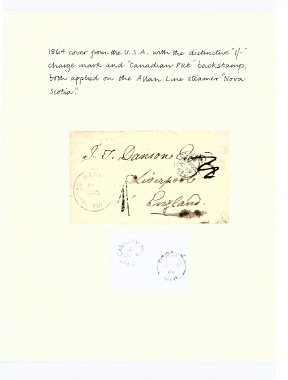 1864 cover from the U.S.A. with the distinctive "1/-"
charge mark and "Canadian Pkt" backstamp,
both applied on the Allan Line steamer "Nova
Scotia".
J. T. Danson Esq
Liverpool
England.